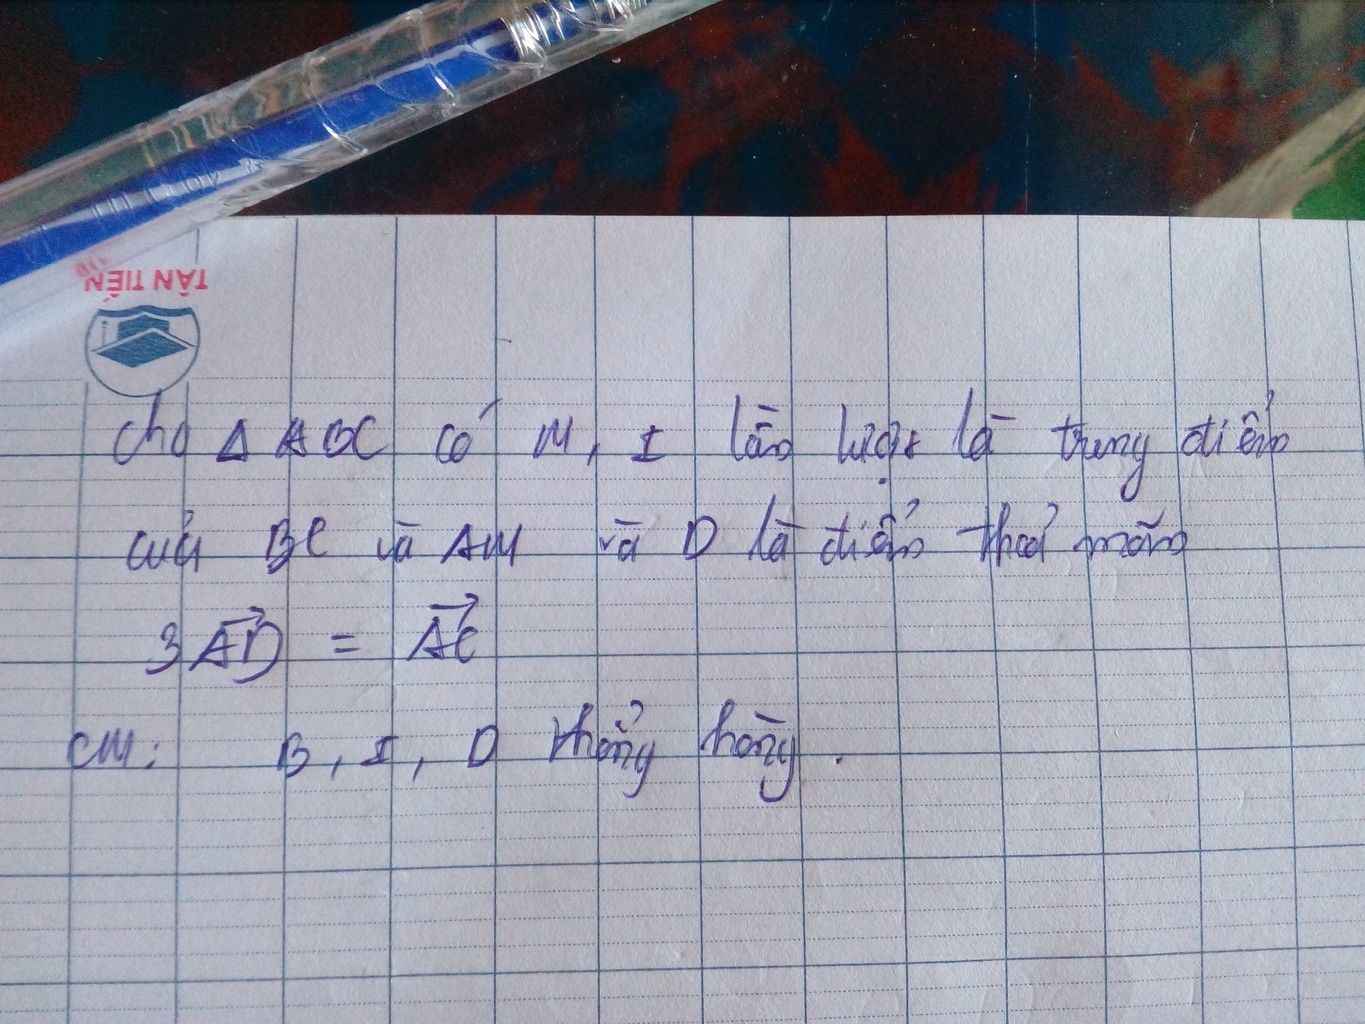 TÂN TIẾN
Cho Δ ABC có M, I lần lượt là trung điểm
của BC và AM và D là điểm thoả mãn
3AD⃗ = AC⃗
CM: B, I, D thẳng hàng.